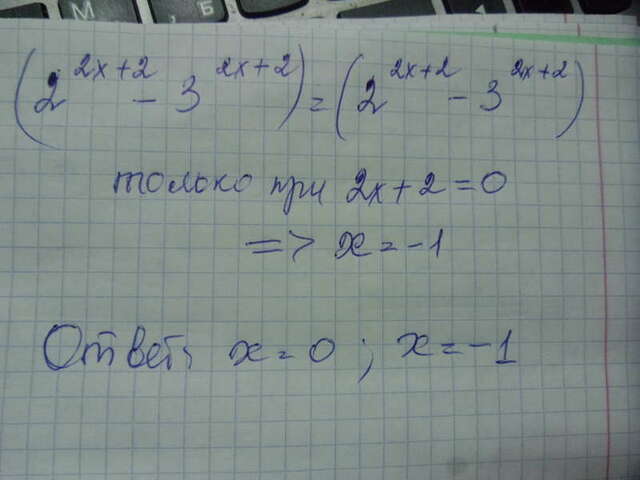 М Б
(2^(2x+2) - 3^(2x+2)) = (2^(2x+2) - 3^(2x+2))
только при 2x+2=0
=> x=-1
Ответ: x=0; x=-1